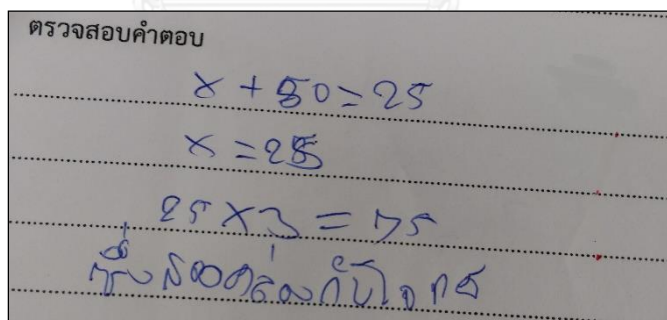 ตรวจสอบคำตอบ
x + 50 = 25
x = 25
25 × 3 = 75
ซึ่งสอดคล่องกับโจทย์